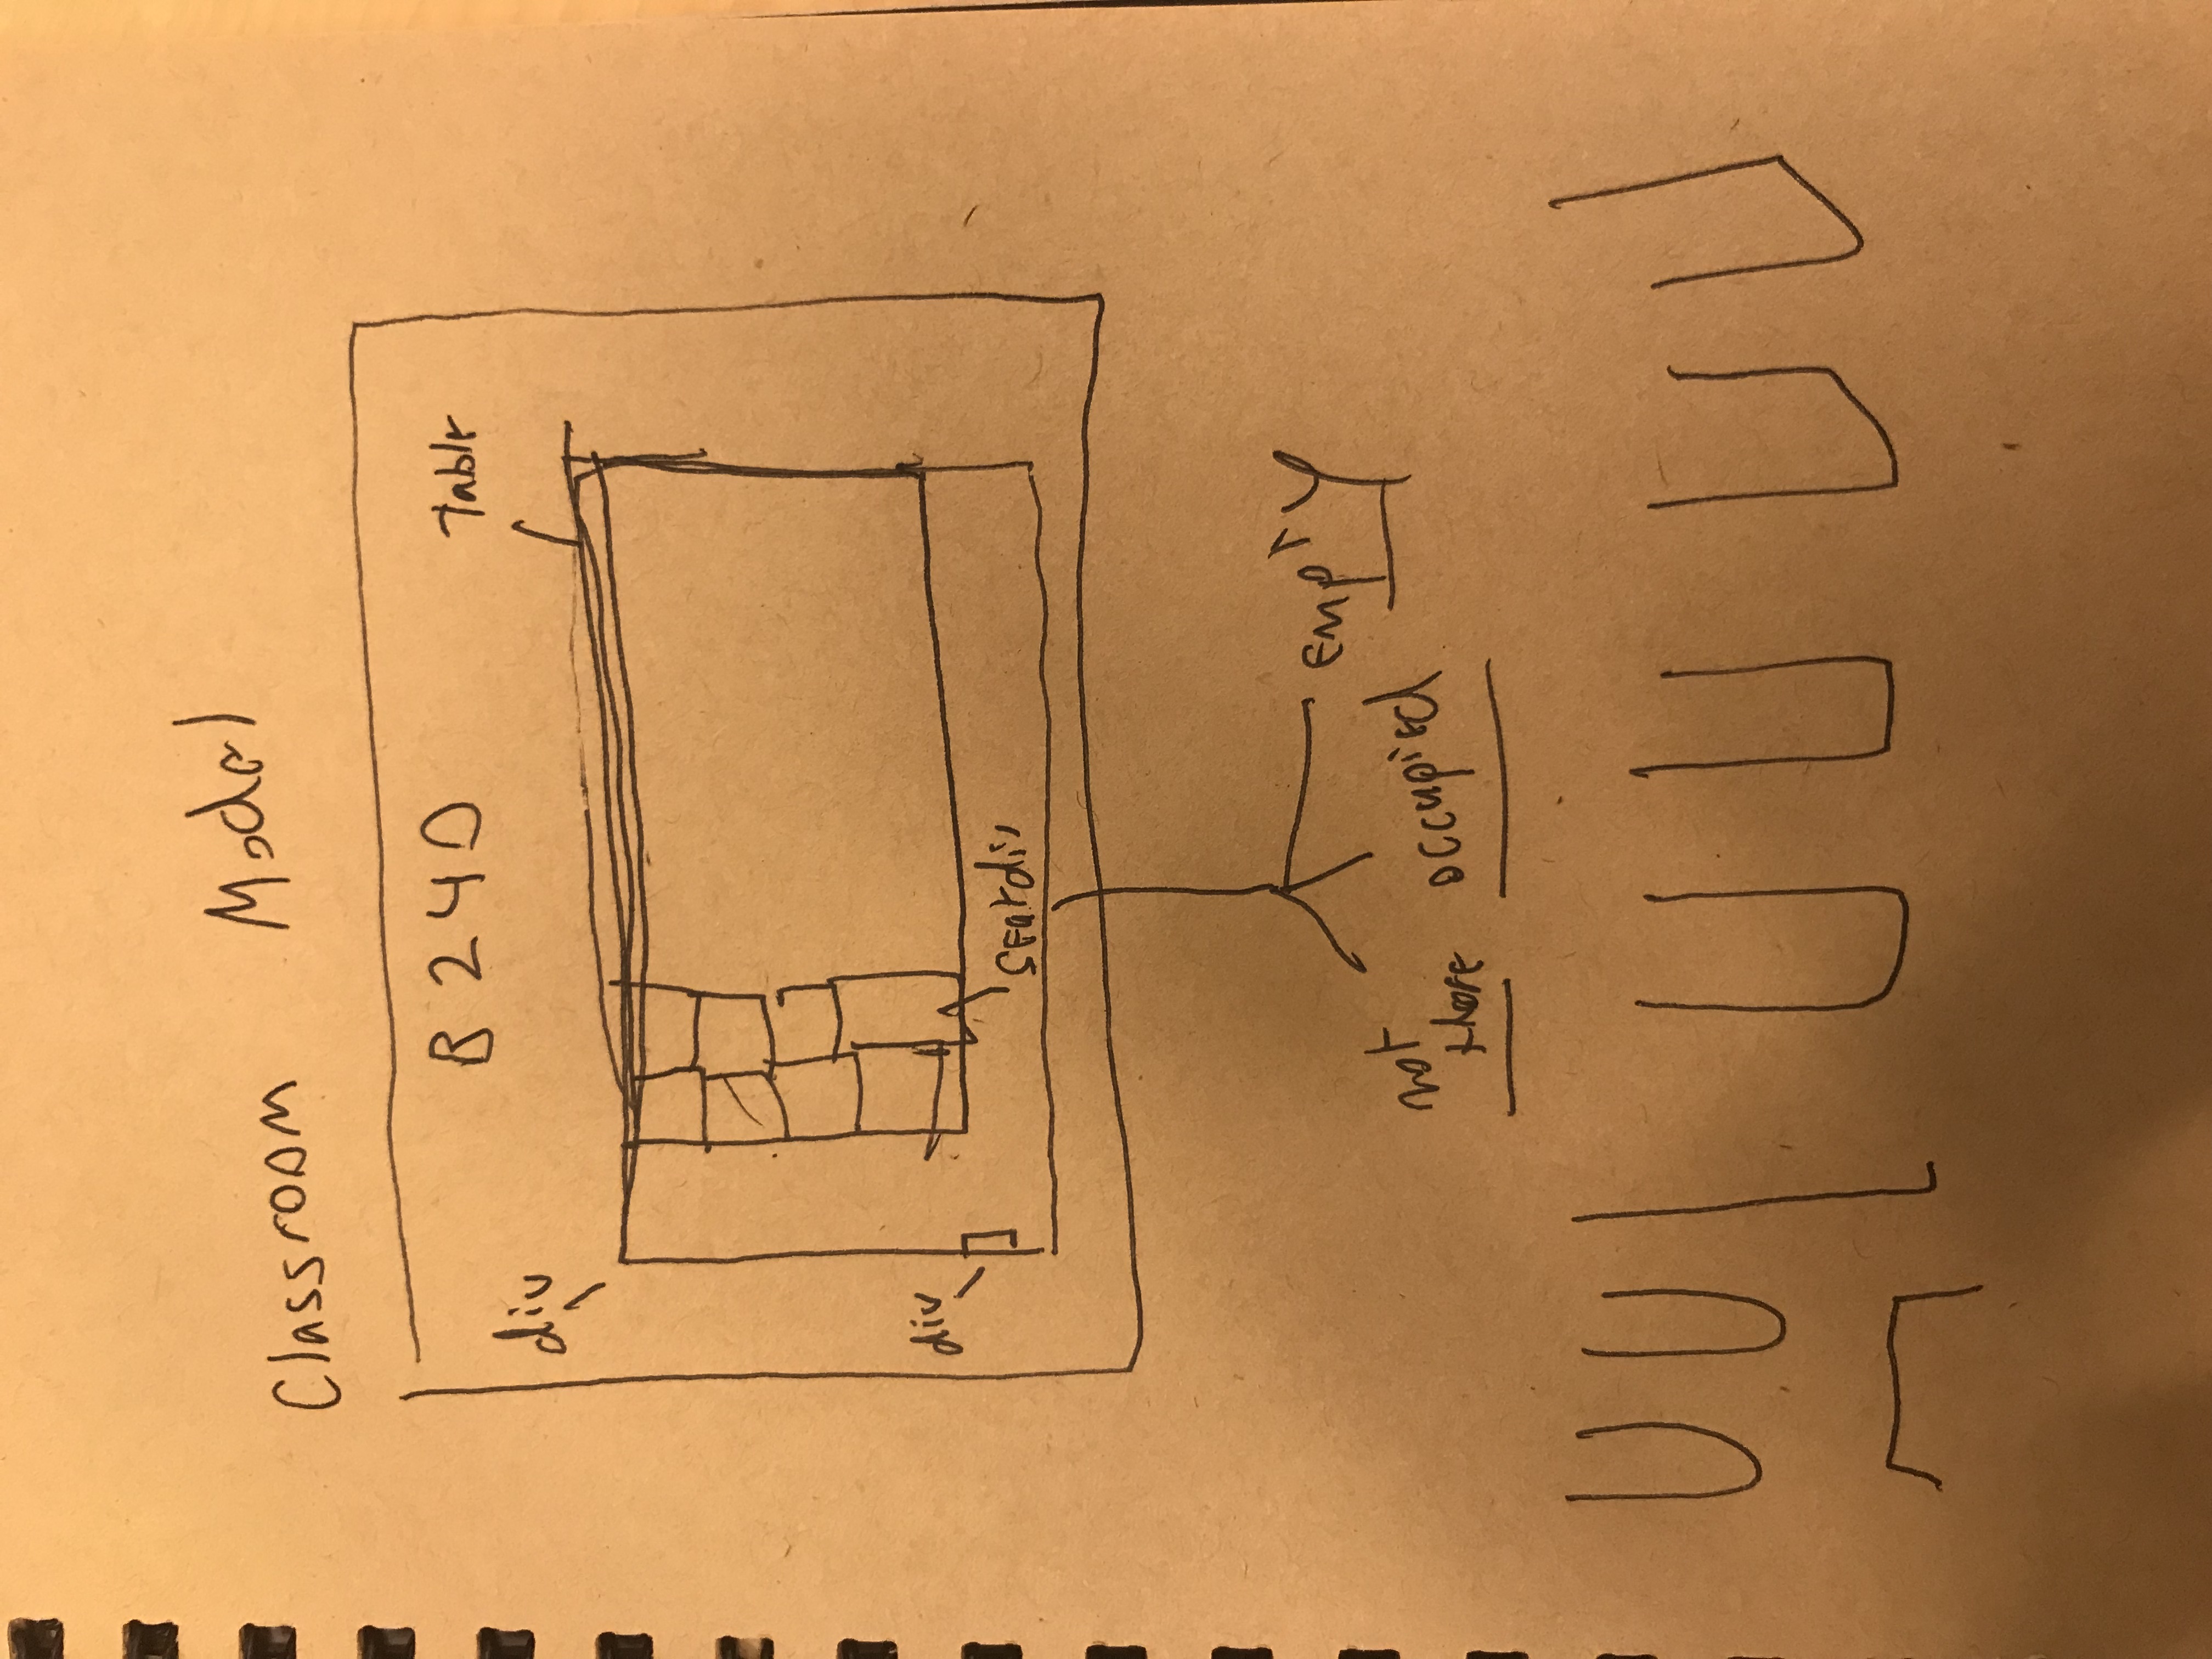 Classroom Model
B240
Table
div
div
Seatdiv
Empty
not
there
occupied